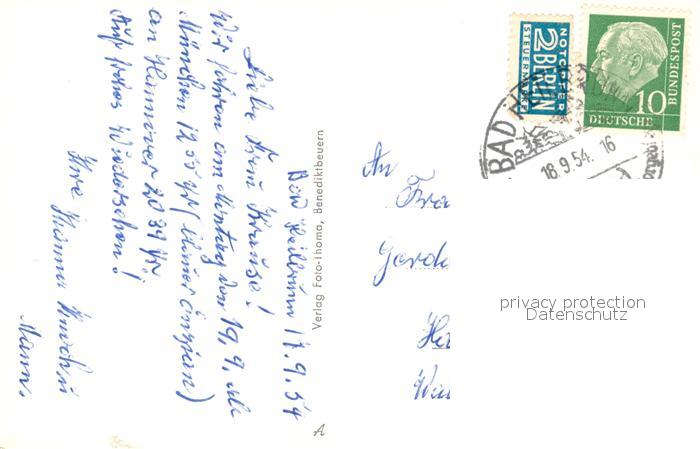 Bad Heilbrunn 17.9.54
Liebe Frau Krause!
Wir fahren am Montag den 19.9. ab
München 12 55 Uhr (blauer Enzian)
an Hannover 20 39 Uhr.
Auf frohes Wiedersehen!
Ihre Hanna
Mann.
Verlag Foto-Thoma, Benediktbeuern
A
NOTOPFER
2 BERLIN
STEUERMARKE
DEUTSCHE
BUNDESPOST
10
BAD
18.9.54. 16
An
Fra
Gerda
privacy protection
Datenschutz